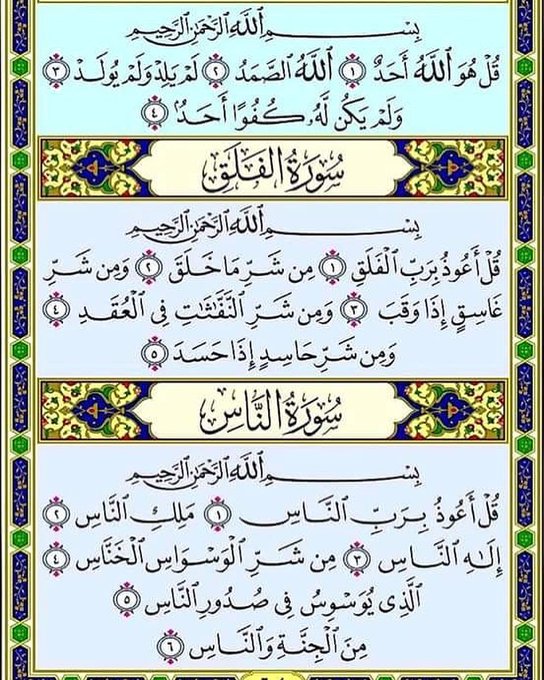 بِسْمِ ٱللَّهِ ٱلرَّحْمَٰنِ ٱلرَّحِيمِ
قُلْ هُوَ ٱللَّهُ أَحَدٌ ١ ٱللَّهُ ٱلصَّمَدُ ٢ لَمْ يَلِدْ وَلَمْ يُولَدْ ٣
وَلَمْ يَكُن لَّهُۥ كُفُوًا أَحَدٌۢ ٤
سُورَةُ الفَلَقِ
بِسْمِ ٱللَّهِ ٱلرَّحْمَٰنِ ٱلرَّحِيمِ
قُلْ أَعُوذُ بِرَبِّ ٱلْفَلَقِ ١ مِن شَرِّ مَا خَلَقَ ٢ وَمِن شَرِّ
غَاسِقٍ إِذَا وَقَبَ ٣ وَمِن شَرِّ ٱلنَّفَّٰثَٰتِ فِى ٱلْعُقَدِ ٤
وَمِن شَرِّ حَاسِدٍ إِذَا حَسَدَ ٥
سُورَةُ النَّاسِ
بِسْمِ ٱللَّهِ ٱلرَّحْمَٰنِ ٱلرَّحِيمِ
قُلْ أَعُوذُ بِرَبِّ ٱلنَّاسِ ١ مَلِكِ ٱلنَّاسِ ٢
إِلَٰهِ ٱلنَّاسِ ٣ مِن شَرِّ ٱلْوَسْوَاسِ ٱلْخَنَّاسِ ٤
ٱلَّذِى يُوَسْوِسُ فِى صُدُورِ ٱلنَّاسِ ٥
مِنَ ٱلْجِنَّةِ وَٱلنَّاسِ ٦